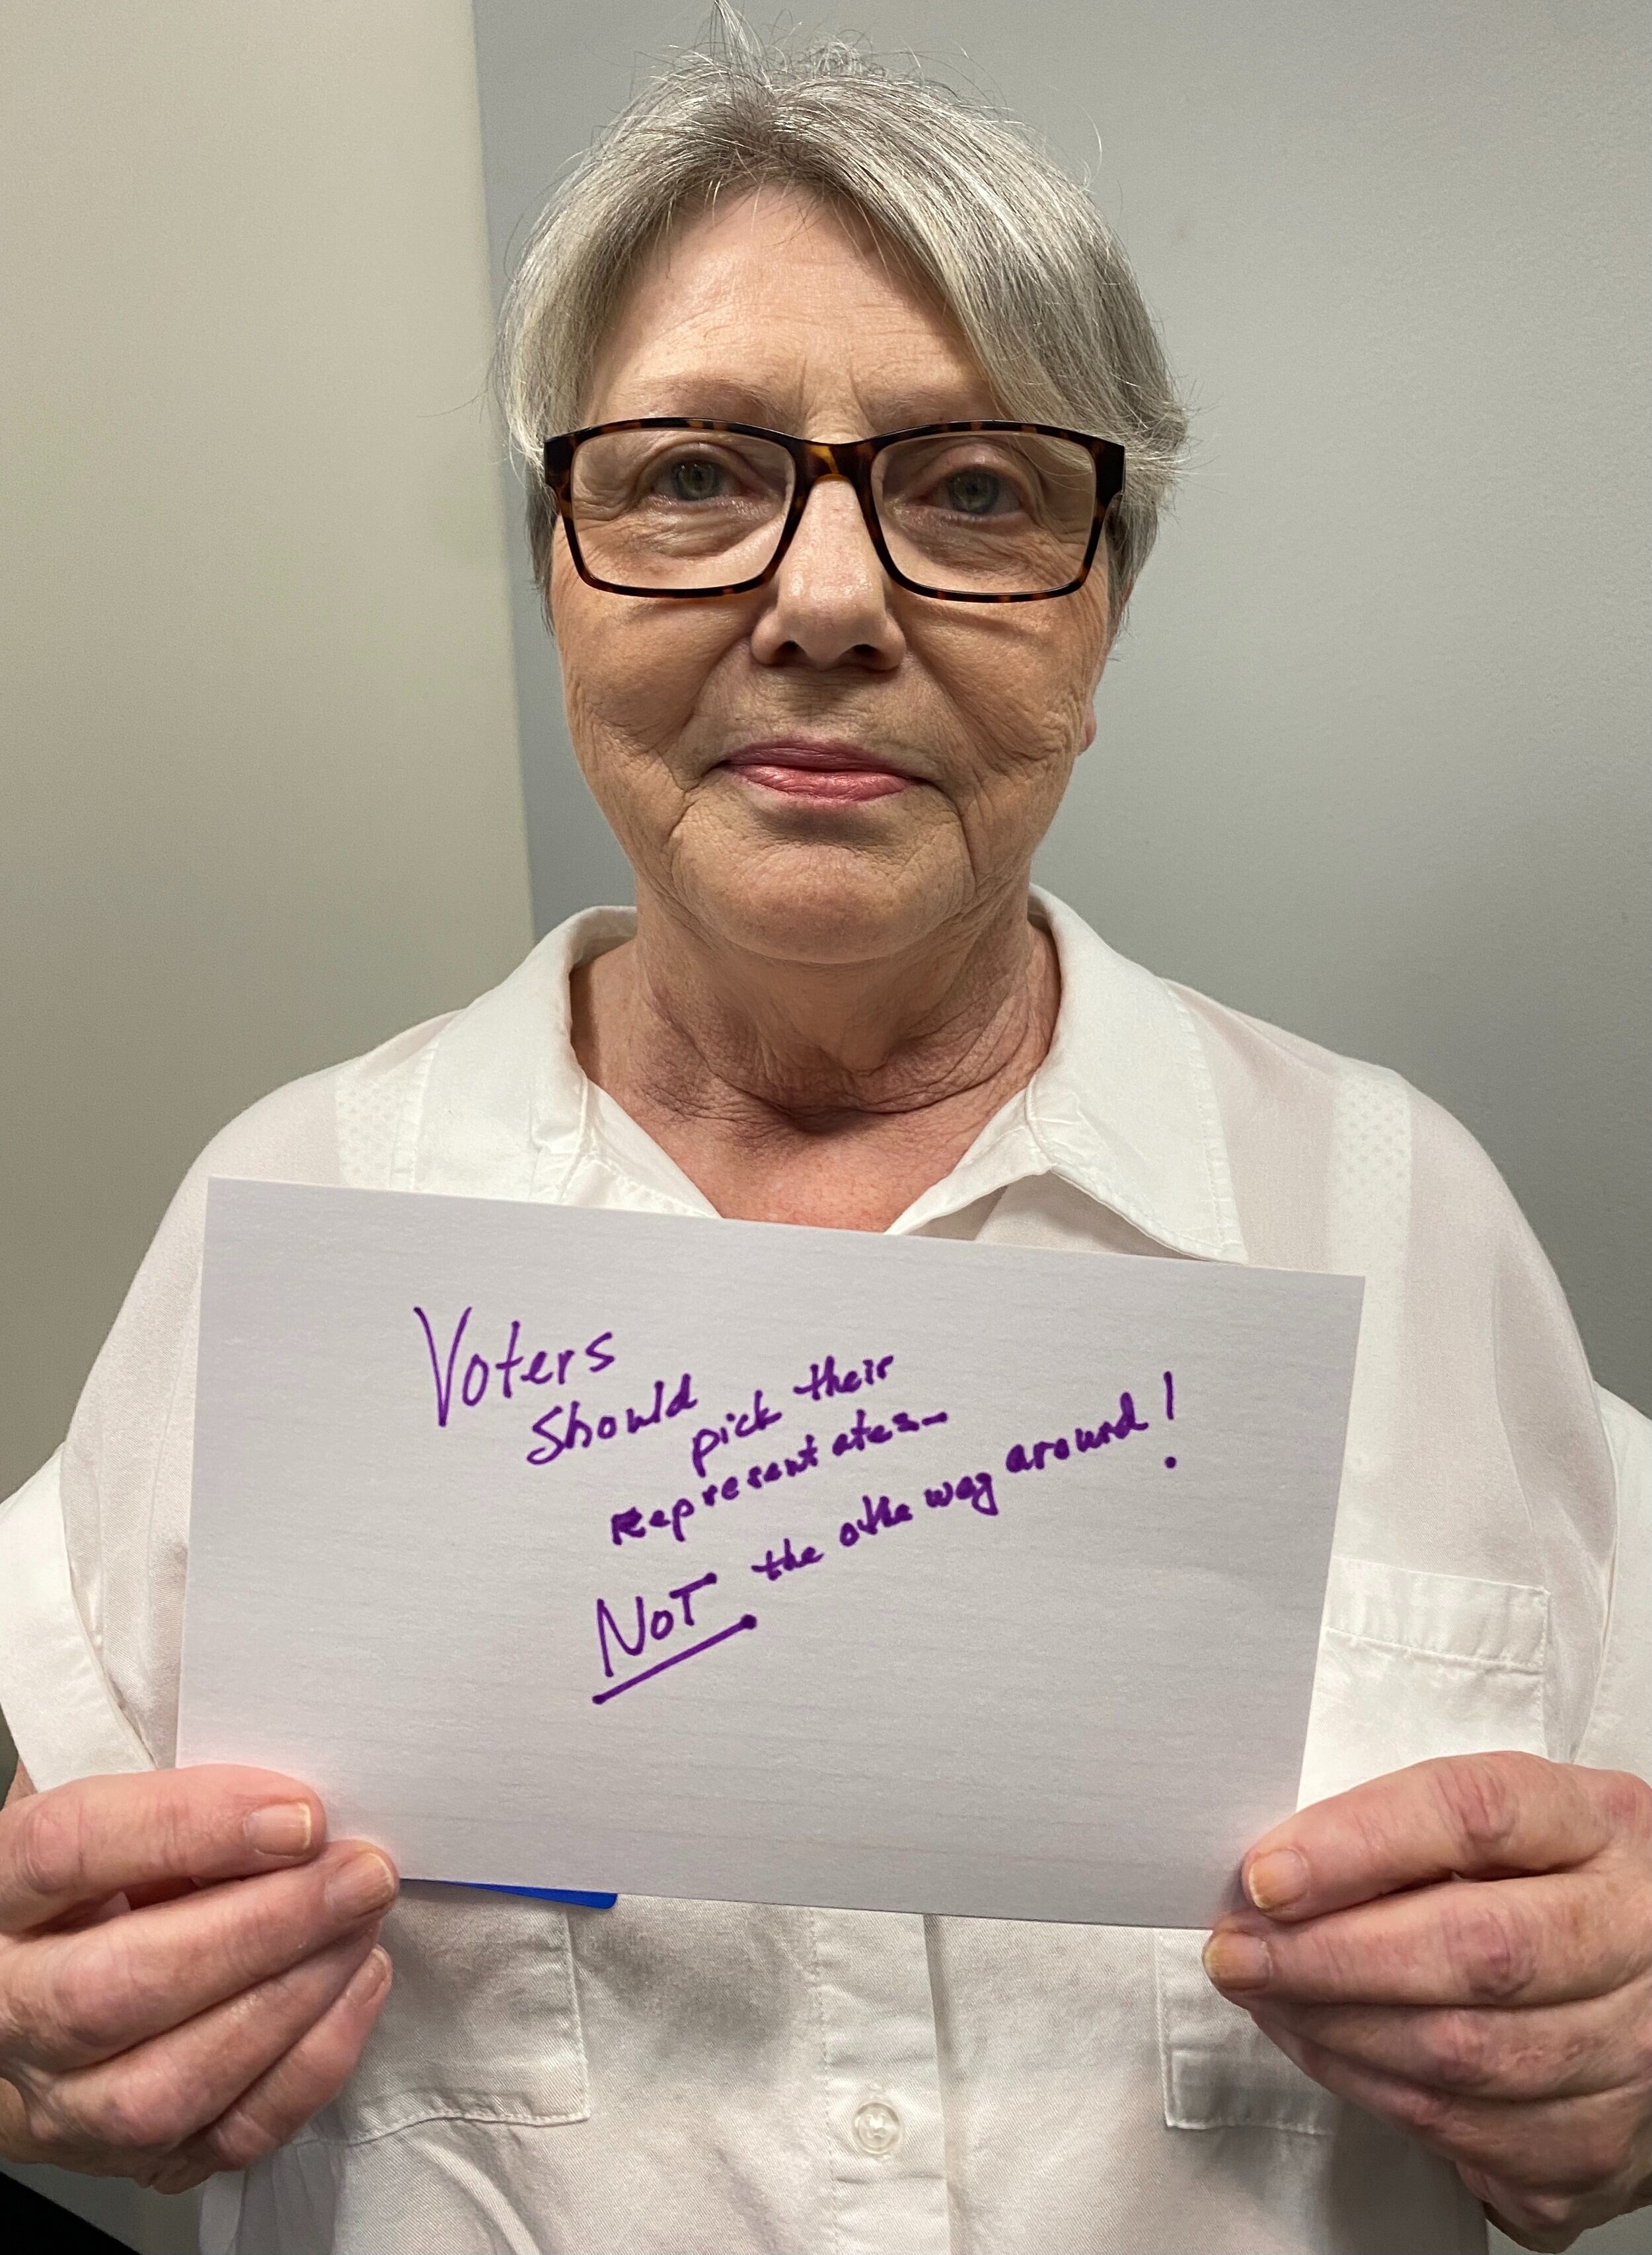 Voters
should
pick their
Representates-
NOT the othe way around!